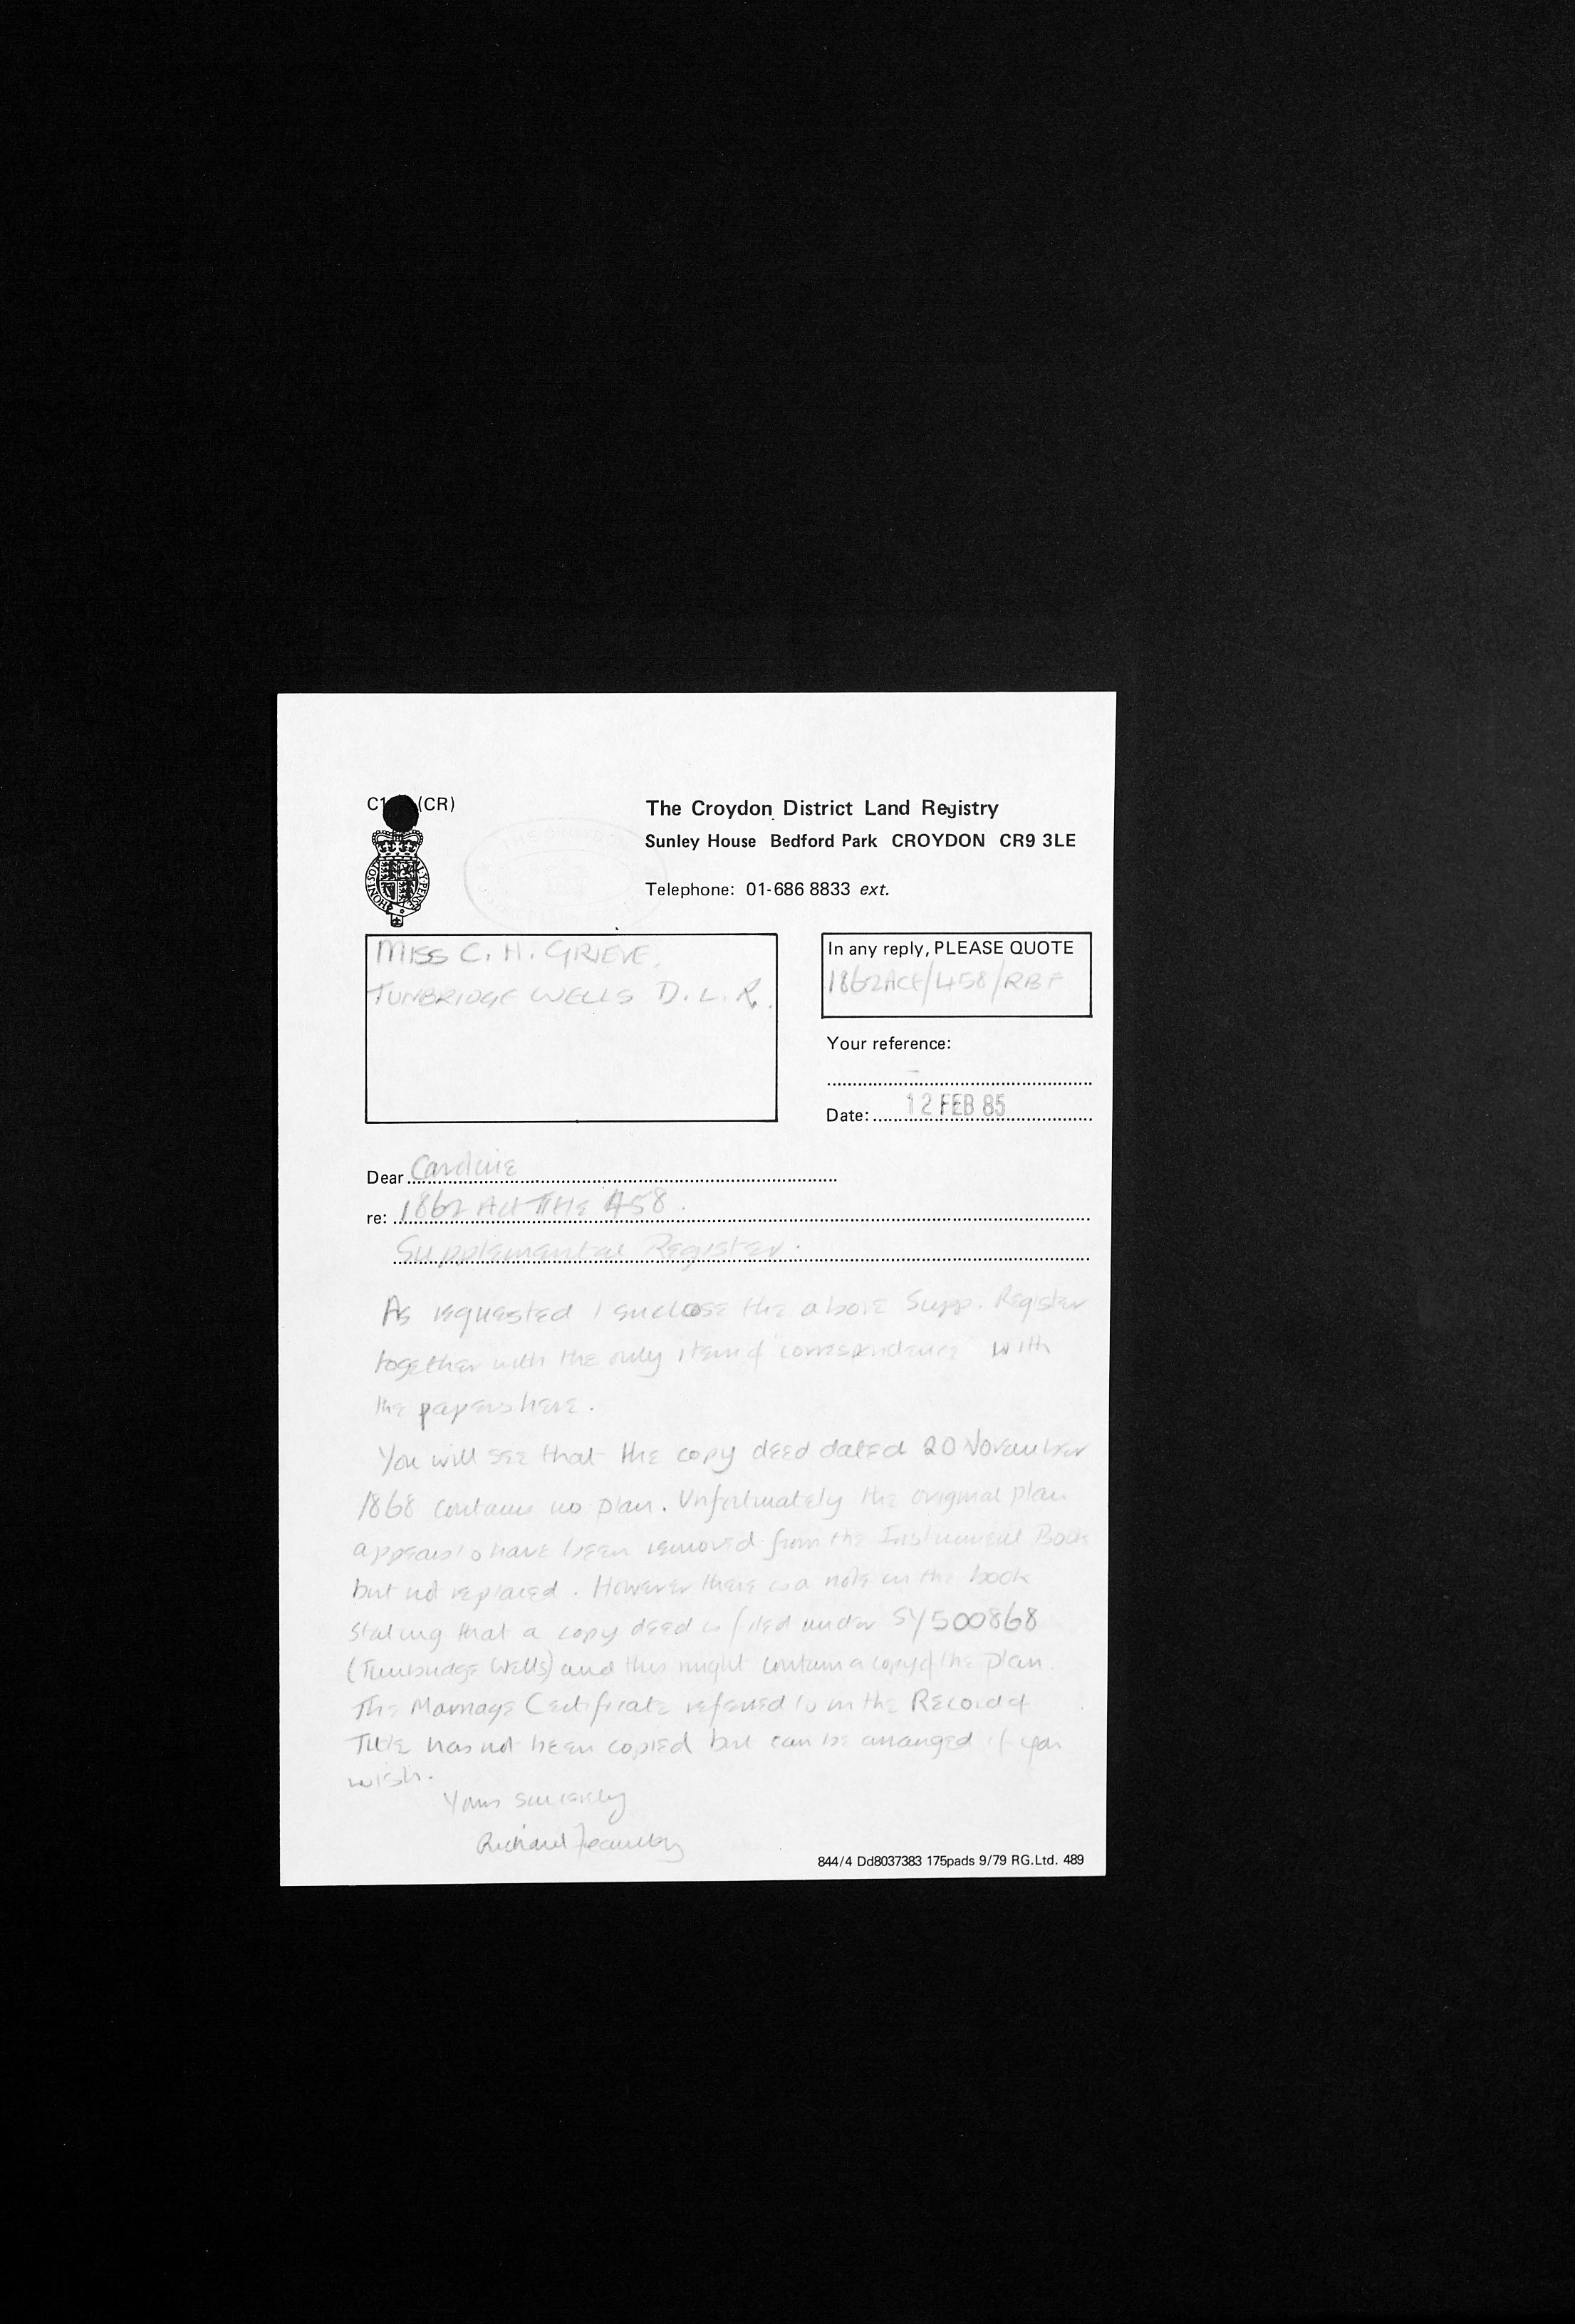 (CR)
The Croydon District Land Registry
Sunley House Bedford Park CROYDON CR9 3LE
Telephone: 01-686 8833 ext.
MISS C. H. GRIEVE.
TUNBRIDGE WELLS D. L. R.
In any reply, PLEASE QUOTE
1862ACT/458/RBF
Your reference:
-
Date: 12 FEB 85
Dear Caroline
re: 1862 Act Title 458.
Supplemental Register.
As requested I enclose the above Supp. Register
together with the only item of "correspondence" with
the papers here.
You will see that the copy deed dated 20 November
1868 contains no plan. Unfortunately the original plan
appears to have been removed from the Instrument Book
but not replaced. However there is a note in the book
stating that a copy deed is filed under SY500868
(Tunbridge Wells) and this might contain a copy of the plan.
The Marriage Certificate referred to in the Record of
Title has not been copied but can be arranged if you
wish.
Yours sincerely
Richard
844/4 Dd8037383 175pads 9/79 RG.Ltd. 489